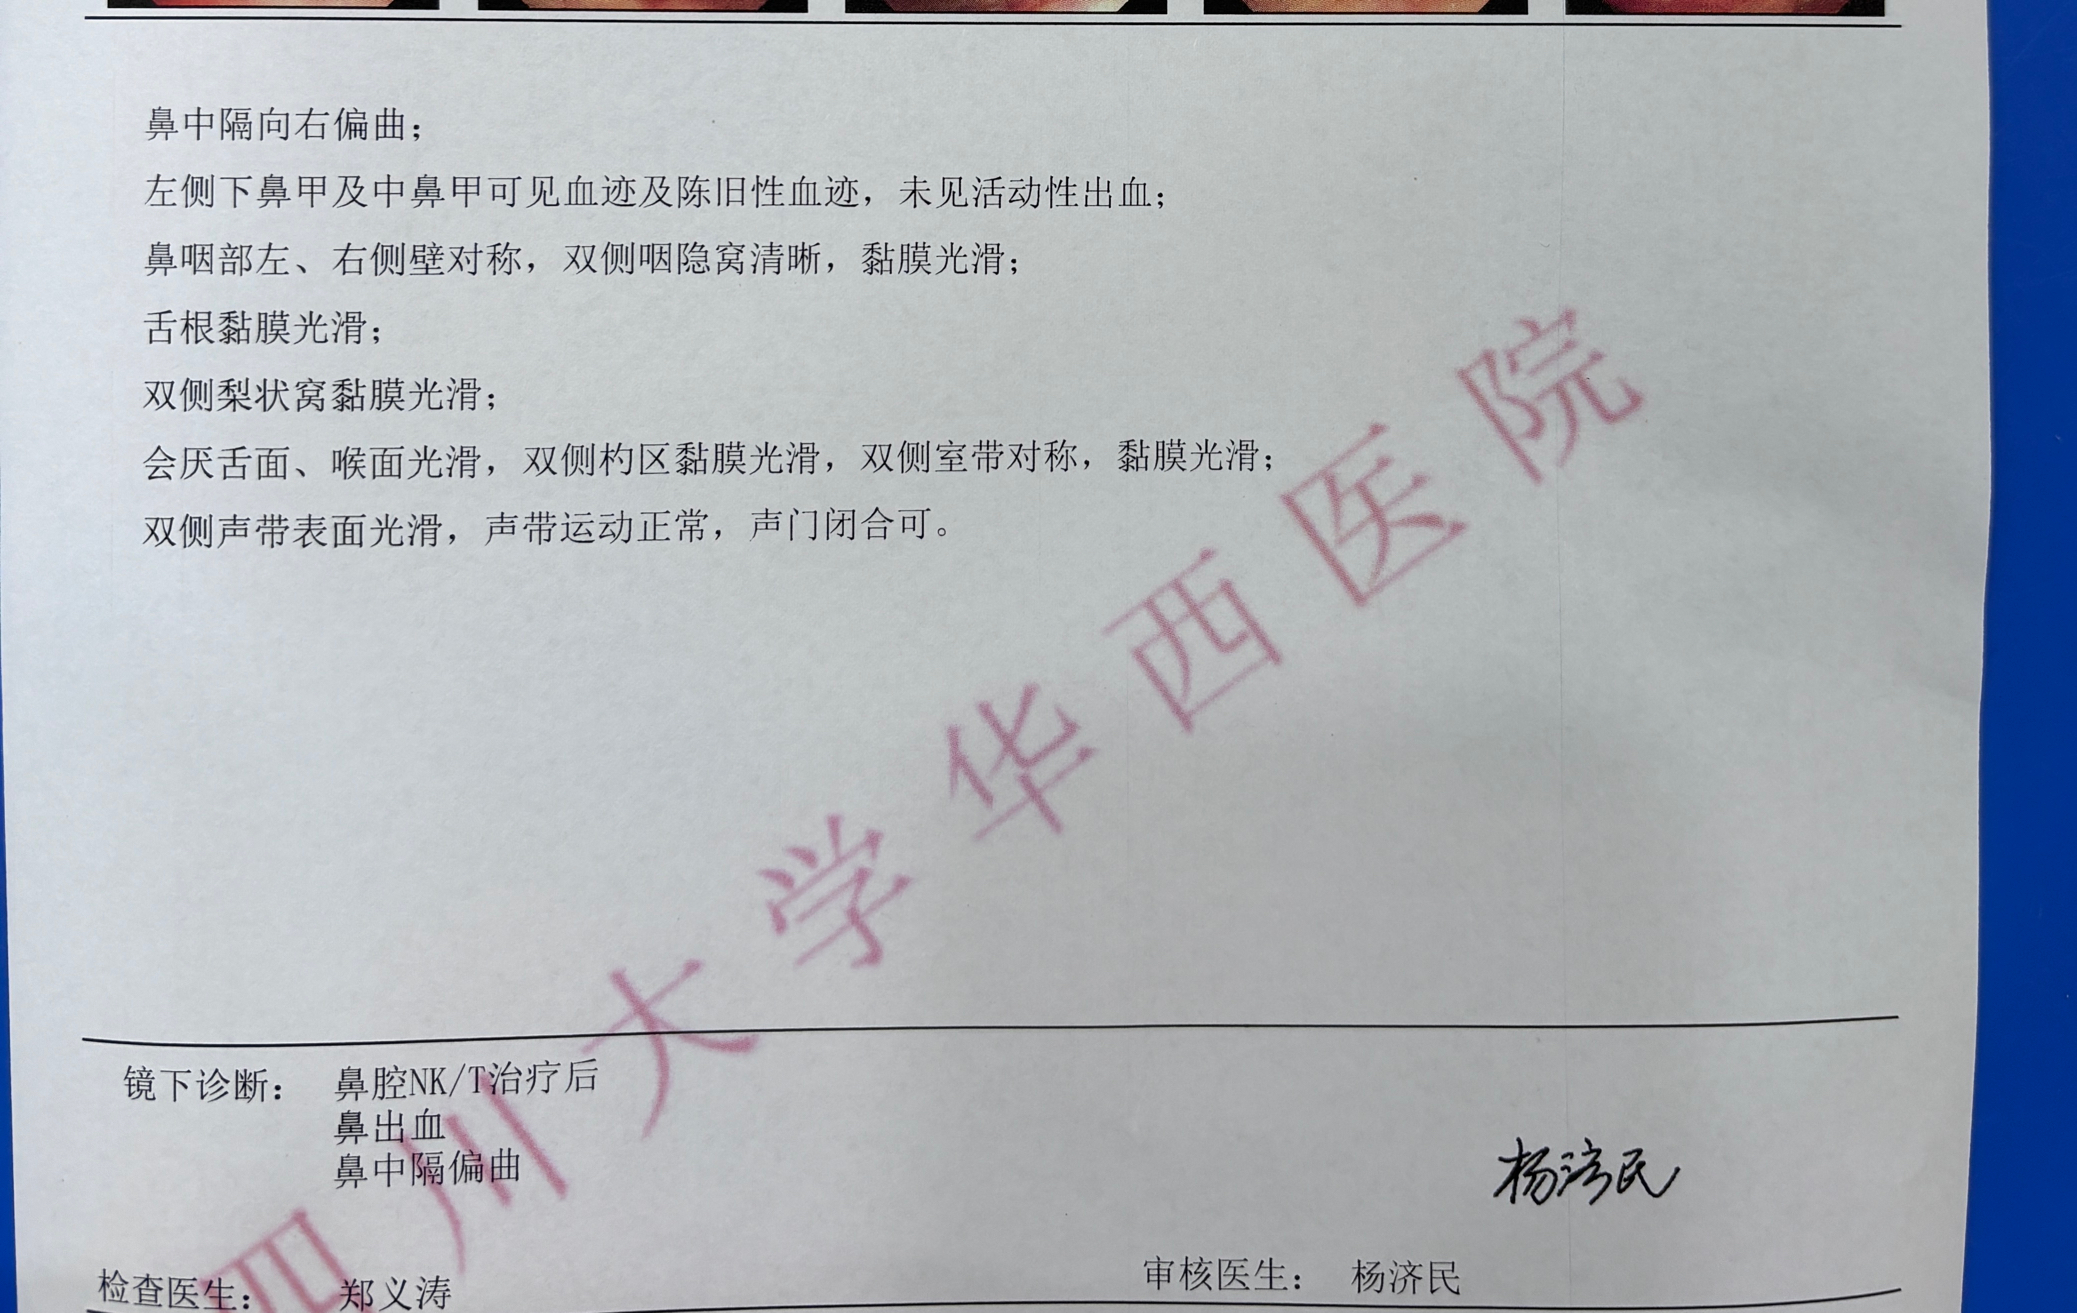 鼻中隔向右偏曲；
左侧下鼻甲及中鼻甲可见血迹及陈旧性血迹，未见活动性出血；
鼻咽部左、右侧壁对称，双侧咽隐窝清晰，黏膜光滑；
舌根黏膜光滑；
双侧梨状窝黏膜光滑；
会厌舌面、喉面光滑，双侧杓区黏膜光滑，双侧室带对称，黏膜光滑；
双侧声带表面光滑，声带运动正常，声门闭合可。
四川大学华西医院
镜下诊断： 鼻腔NK/T治疗后
鼻出血
鼻中隔偏曲
杨济民
检查医生： 郑义涛 审核医生： 杨济民